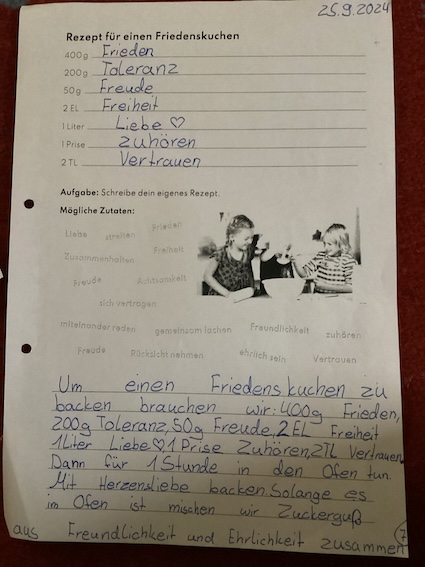 25.9.2024
Rezept für einen Friedenskuchen
400g Frieden
200g Toleranz
50g Freude
2 EL Freiheit
1 Liter Liebe ♡
1 Prise zuhören
2 TL Vertrauen
Aufgabe: Schreibe dein eigenes Rezept.
Mögliche Zutaten:
Liebe streiten Frieden
Zusammenhalten Freiheit
Freude Achtsamkeit
sich vertragen
miteinander reden gemeinsam lachen Freundlichkeit zuhören
Freude Rücksicht nehmen ehrlich sein Vertrauen
Um einen Friedenskuchen zu
backen brauchen wir: 400g Frieden,
200g Toleranz, 50g Freude, 2 EL Freiheit
1 Liter Liebe♡, 1 Prise Zuhören, 2TL Vertrauen
Dann für 1 Stunde in den Ofen tun.
Mit Herzensliebe backen. Solange es
im Ofen ist mischen wir Zuckerguß
aus Freundlichkeit und Ehrlichkeit zusammen
7